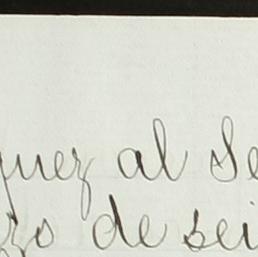 quez al Se
zo de sei